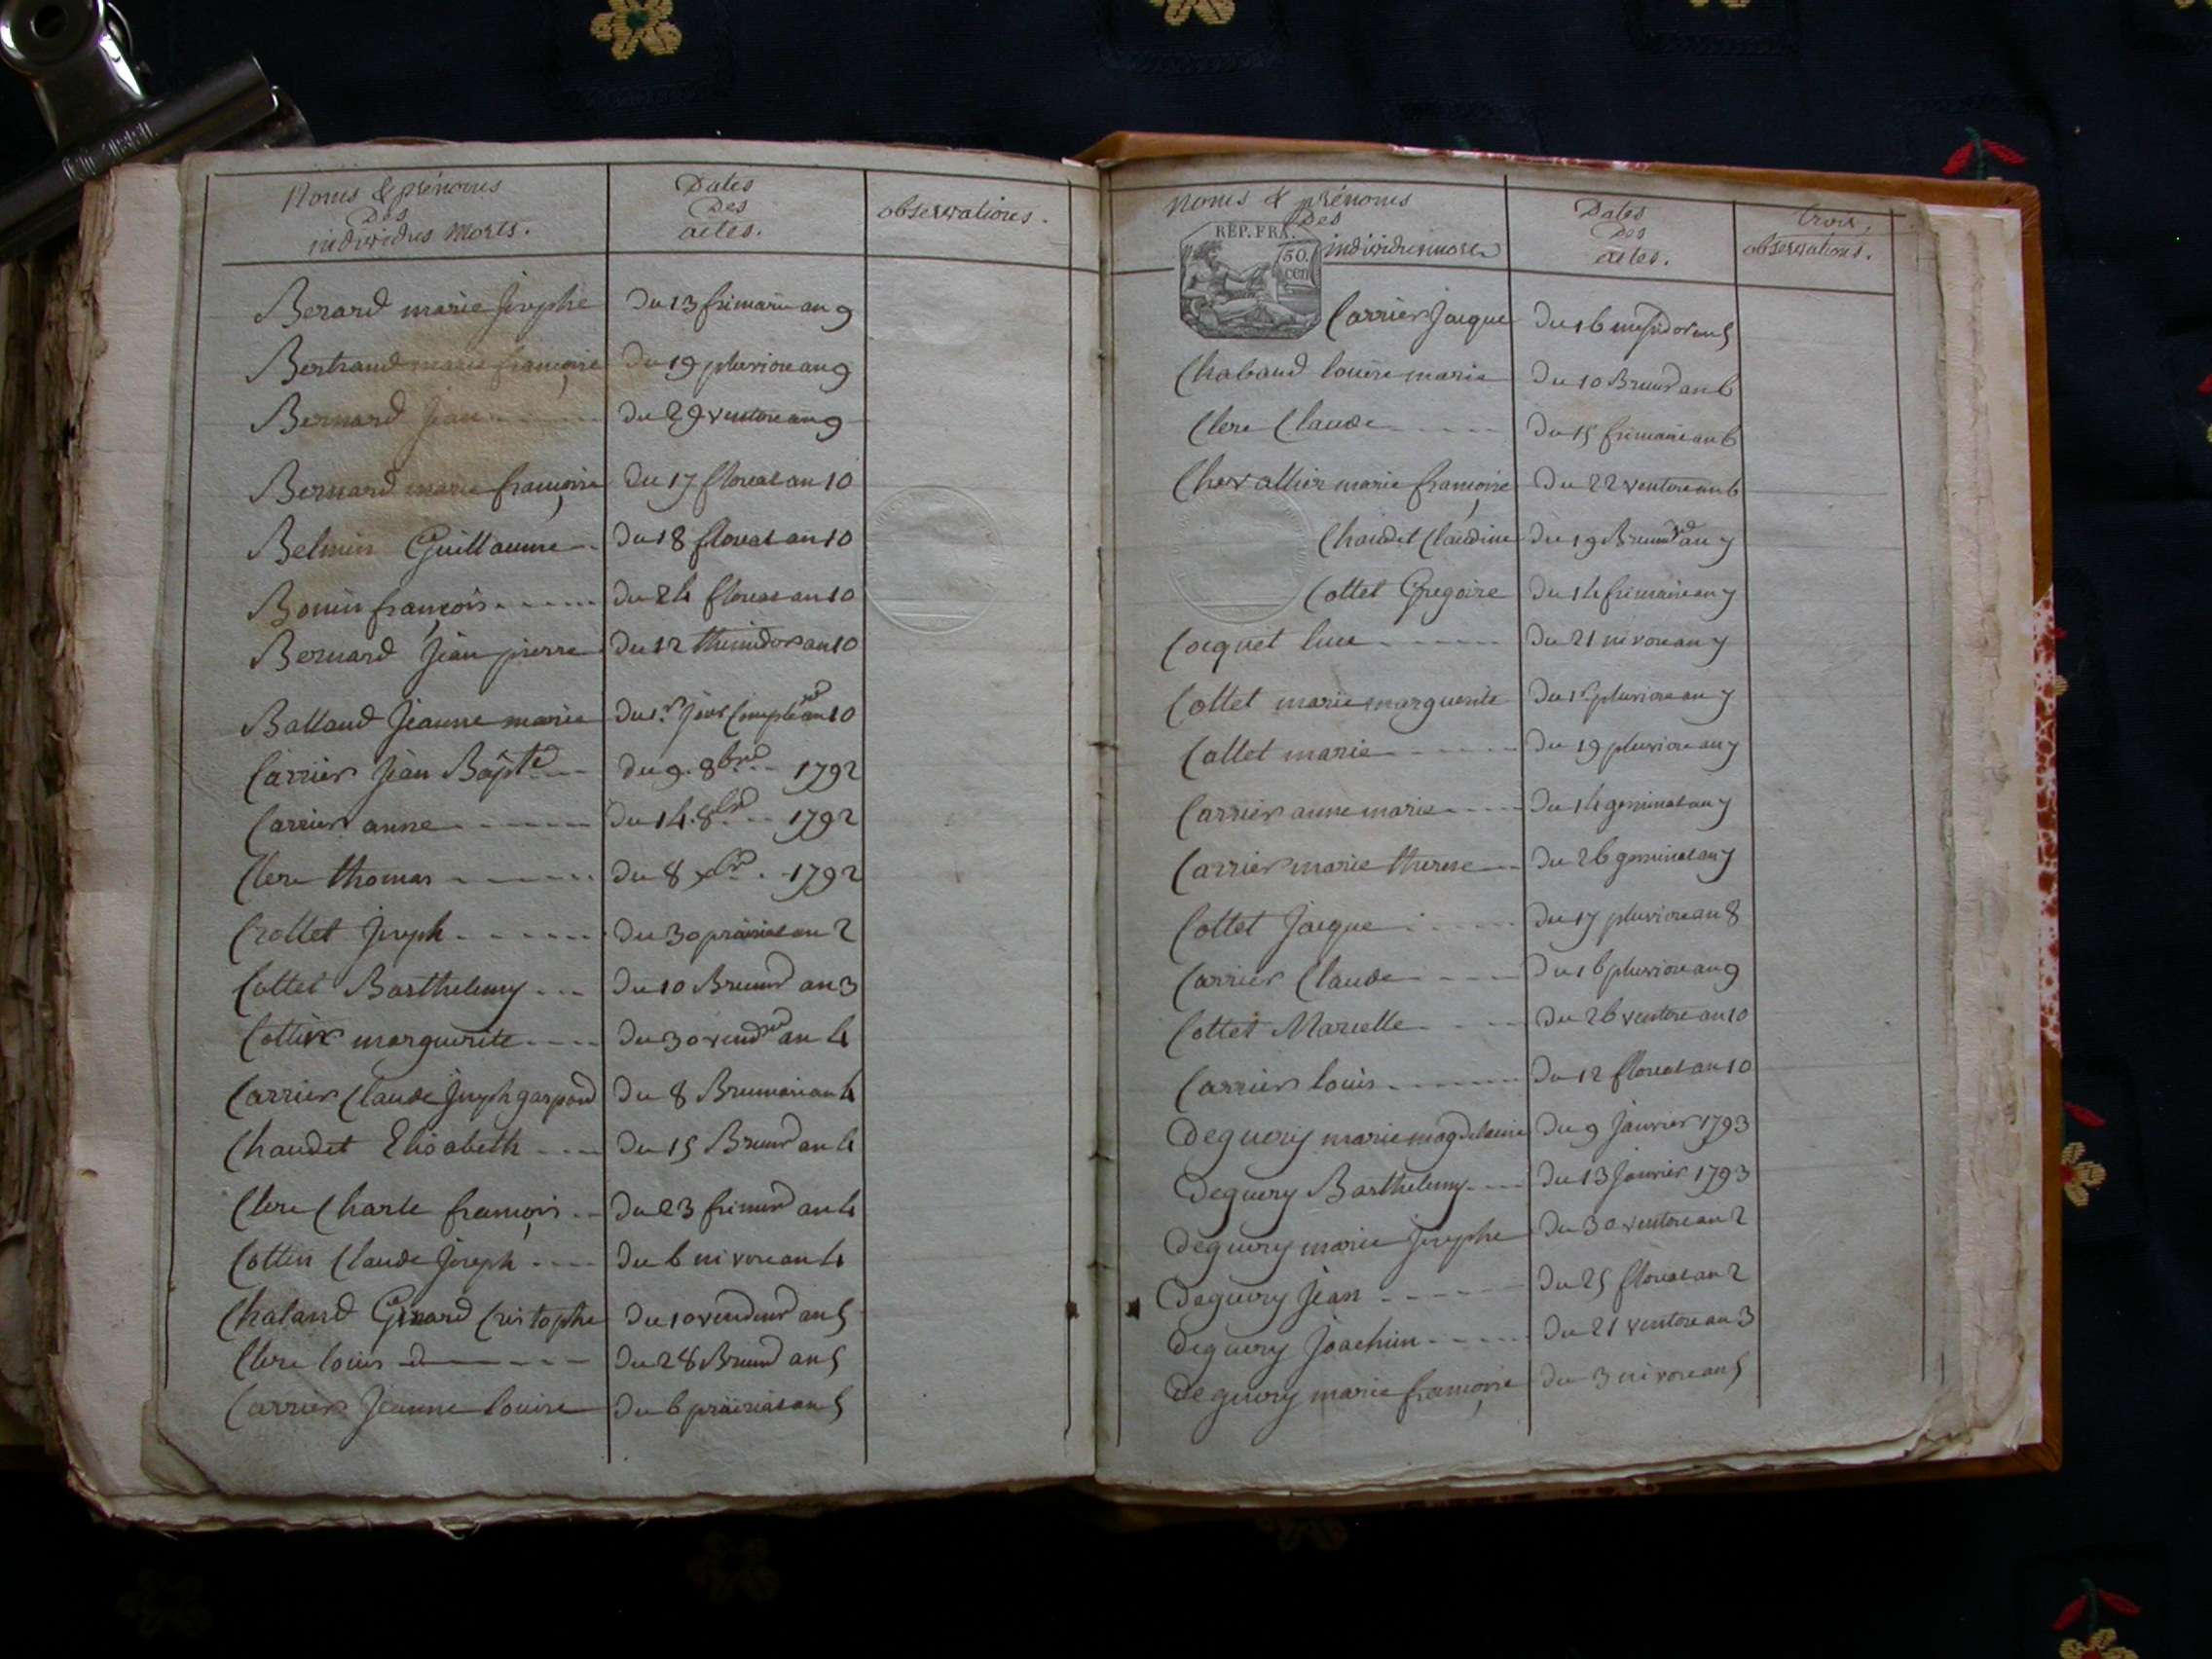 Noms & prénoms
Des
individus Morts.
Dates
Des
actes.
observations.
Berard marie Josephe Du 13 frimaire an 9
Bertrand marie françoise Du 19 pluviose an 9
Bernard Jean Du 29 ventose an 9
Bernard marie françoise Du 17 floreal an 10
Belmin Guillaume Du 18 floreal an 10
Bonin françois Du 24 floreal an 10
Bernard Jean pierre Du 12 thermidor an 10
Balland Jeanne marie Du 1.r Jour Complre an 10
Carrier Jean Bapte Du 9. 8bre 1792
Carrier anne Du 14. 8bre 1792
Clerc thomas Du 8 xbre 1792
Crottet Joseph Du 30 prairial an 2
Cottet Barthelemy Du 10 Brumr an 3
marguerite Du 30 vendre an 4
Carrier Claude Joseph gaspard Du 8 Brumaire an 4
Chaudet Elisabeth Du 15 Brumr an 4
Clerc Charle francois Du 23 frimre an 4
Cottin Claude Joseph Du 6 nivose an 4
Chaland Girard Cristophe Du 10 vendemre an 5
Clerc louis Du 28 Brumr an 5
Carrier Jeanne louise Du 6 prairial an 5
Noms & prénoms
Des
individus morts
Dates
Des
actes.
trois,
observations.
REP. FRA.
50.
cen
Carrier Jacque Du 16 messidor an 5
Chabaud louise marie Du 10 Brumr an 6
Clerc Claude Du 15 frimaire an 6
Chevallier marie françoise Du 22 ventose an 6
Chaudet Claudine Du 19 Brumre an 7
Cottet Gregoire Du 14 frimaire an 7
Cocquet luce Du 21 nivose an 7
Cottet marie marguerite Du 1r pluviose an 7
Cottet marie Du 19 pluviose an 7
Carrier anne marie Du 14 germinal an 7
Carrier marie therese Du 26 germinal an 7
Cottet Jacque Du 17 pluviose an 8
Carrier Claude Du 16 pluviose an 9
Cottet Marcelle Du 26 ventose an 10
Carrier louis Du 12 floreal an 10
Deguery marie magdelaine Du 9 Janvier 1793
Deguery Barthelemy Du 13 Janvier 1793
Deguery marie Josephe Du 30 ventose an 2
Deguery Jean Du 25 floreal an 2
Deguery Joachim Du 21 ventose an 3
Deguery marie françoise Du 3 nivose an 5